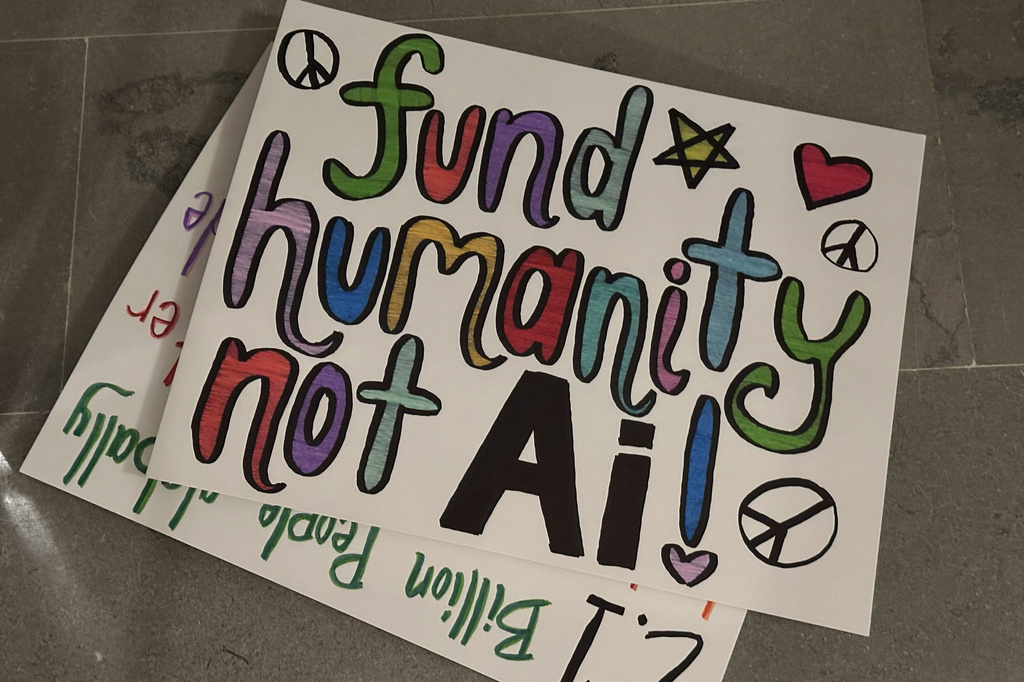 fund
humanity
not Ai!
2.1
Billion People globally